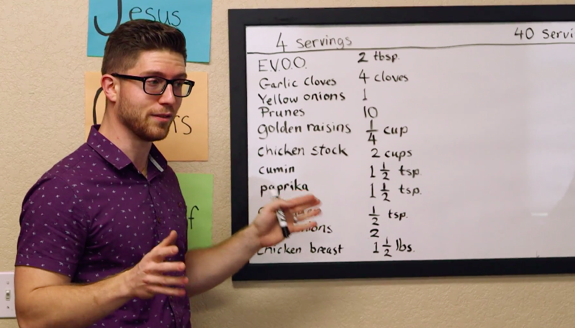 Jesus
4 servings 40 Servi
EVOO 2 tbsp.
Garlic cloves 4 cloves
Yellow onions 1
Prunes 10
golden raisins 1/4 cup
chicken stock 2 cups
cumin 1 1/2 tsp.
paprika 1 1/2 tsp.
1/2 tsp.
2
chicken breast 1 1/2 lbs.